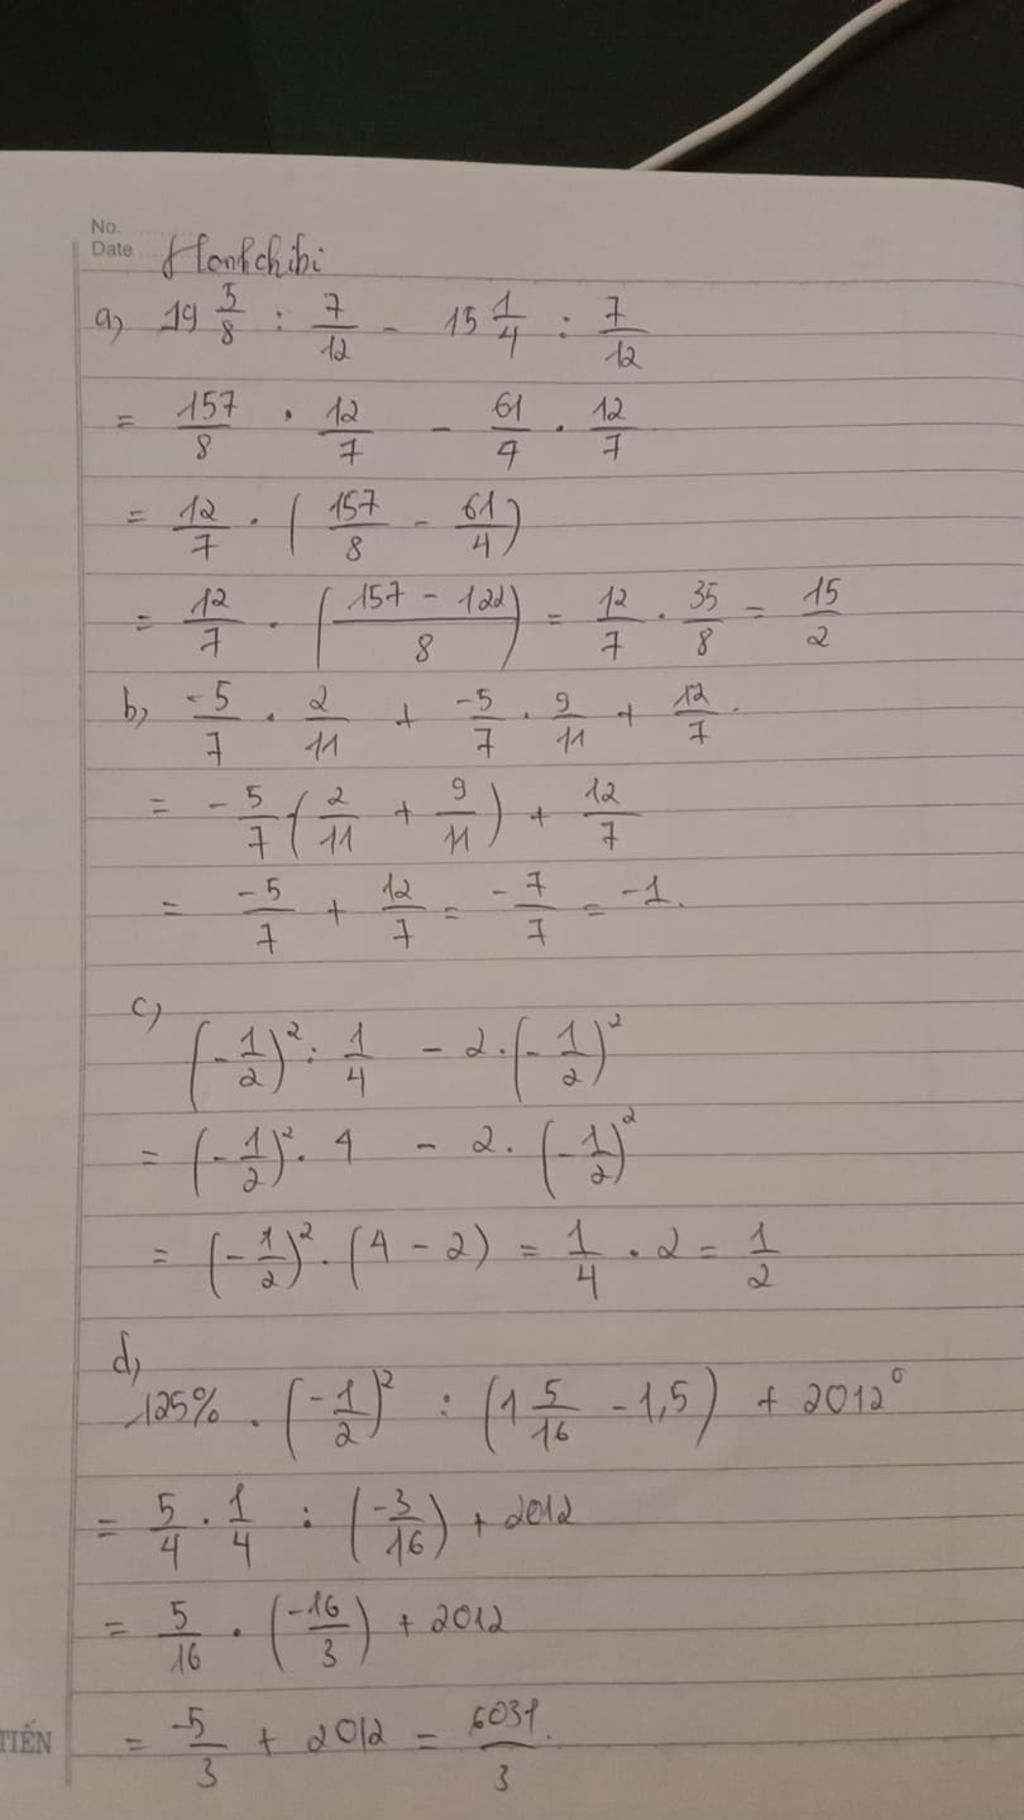 No.
Date Honkchibi
a) 19 5/8 : 7/12 - 15 1/4 : 7/12
= 157/8 . 12/7 - 61/4 . 12/7
= 12/7 . (157/8 - 61/4)
= 12/7 . ((157 - 122)/8) = 12/7 . 35/8 = 15/2
b) -5/7 . 2/11 + -5/7 . 9/11 + 12/7.
= -5/7 (2/11 + 9/11) + 12/7
= -5/7 + 12/7 = -7/7 = -1.
c)
(-1/2)² : 1/4 - 2.(-1/2)²
= (-1/2)². 4 - 2. (-1/2)²
= (-1/2)². (4 - 2) = 1/4 . 2 = 1/2
d)
125% . (-1/2)² : (1 5/16 - 1,5) + 2012⁰
= 5/4 . 1/4 : (-3/16) + 2012
= 5/16 . (-16/3) + 2012
= -5/3 + 2012 = 6031/3.
TIẾN